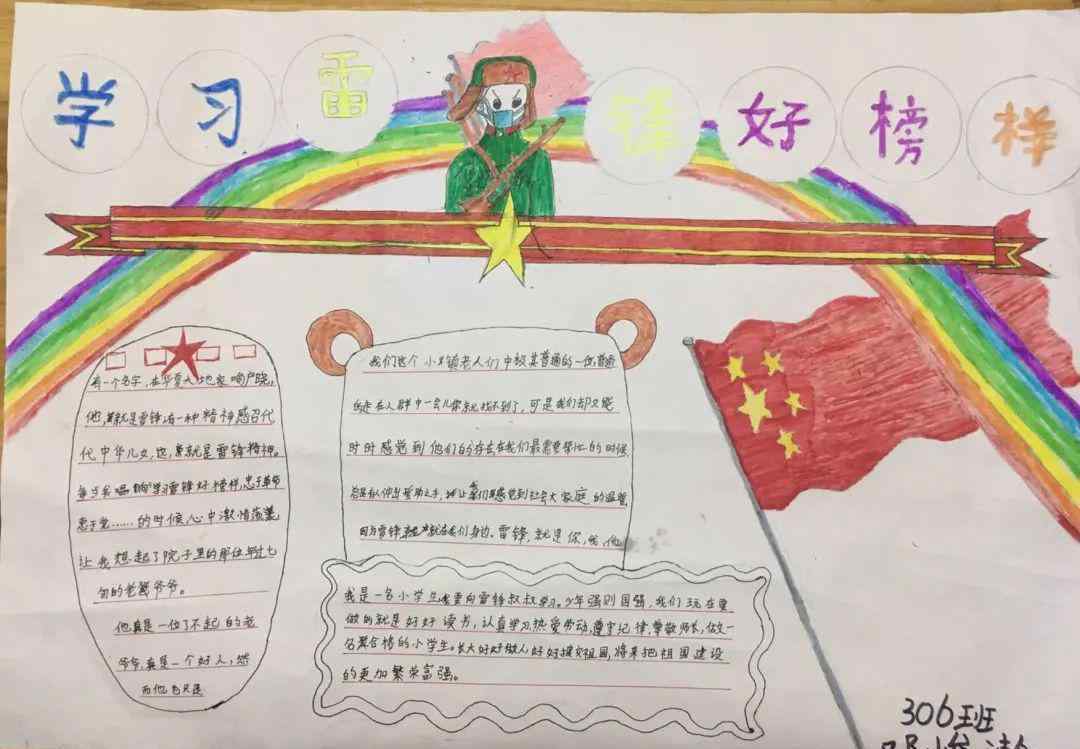 学习雷锋好榜样
有一个名字,在华夏大地家喻户晓,
他,就是雷锋,有一种精神感召代
代中华儿女,它,就是雷锋精神。
每当我唱响学习雷锋好榜样,忠于革命
忠于党……的时候,心中激情荡漾,
让我想起了院子里的那位年过七
旬的老爷爷。
他真是一位了不起的老
爷爷,真是一个好人,然
而他也只是
我们这个小镇老人们中极其普通的一位普通
的走在人群中一会儿你就找不到了,可是我们却又能
时时感觉到他们的存在在我们最需要帮忙的时候
总是有人伸出援助之手,让我们感觉到社会大家庭的温暖
因为雷锋,就在我们身边。雷锋,就是你,我,他
我是一名小学生我要向雷锋叔叔学习。少年强则国强,我们现在要
做的就是好好读书,认真学习,热爱劳动,遵守纪律,尊敬师长,做一
名聚合格的小学生。长大好好做人好好探究祖国,将来把祖国建设
的更加繁荣富强。
306班